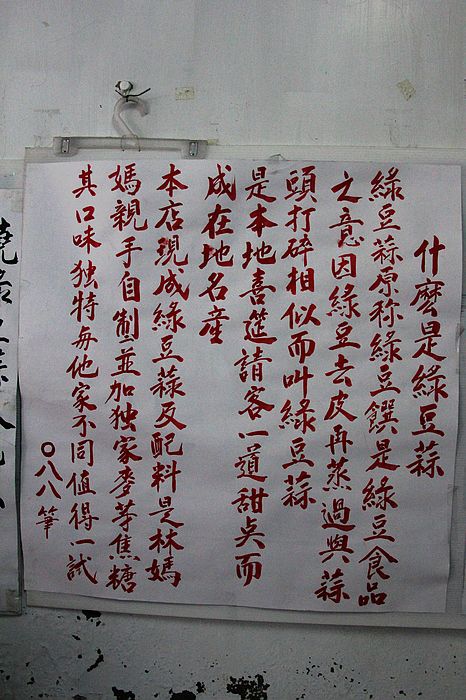 什麼是綠豆蒜
綠豆蒜原称綠豆饌是綠豆食品
之意因綠豆去皮再蒸過與蒜
頭打碎相似而叫綠豆蒜
是本地喜筵請客一道甜奌而
成在地名産
本店現成綠豆蒜及配料是林媽
媽親手自製並加独家麥芽焦糖
其口味独特与他家不同值得一試
〇八八筆